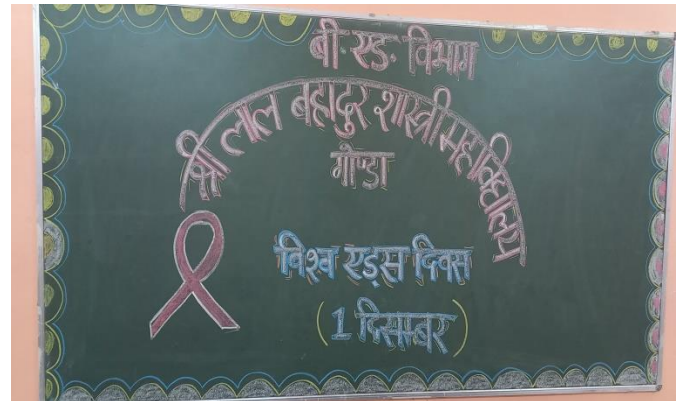 बी॰ एड॰ विभाग
श्री लाल बहादुर शास्त्री महाविद्यालय
गोण्डा
विश्व एड्स दिवस
(1 दिसम्बर)